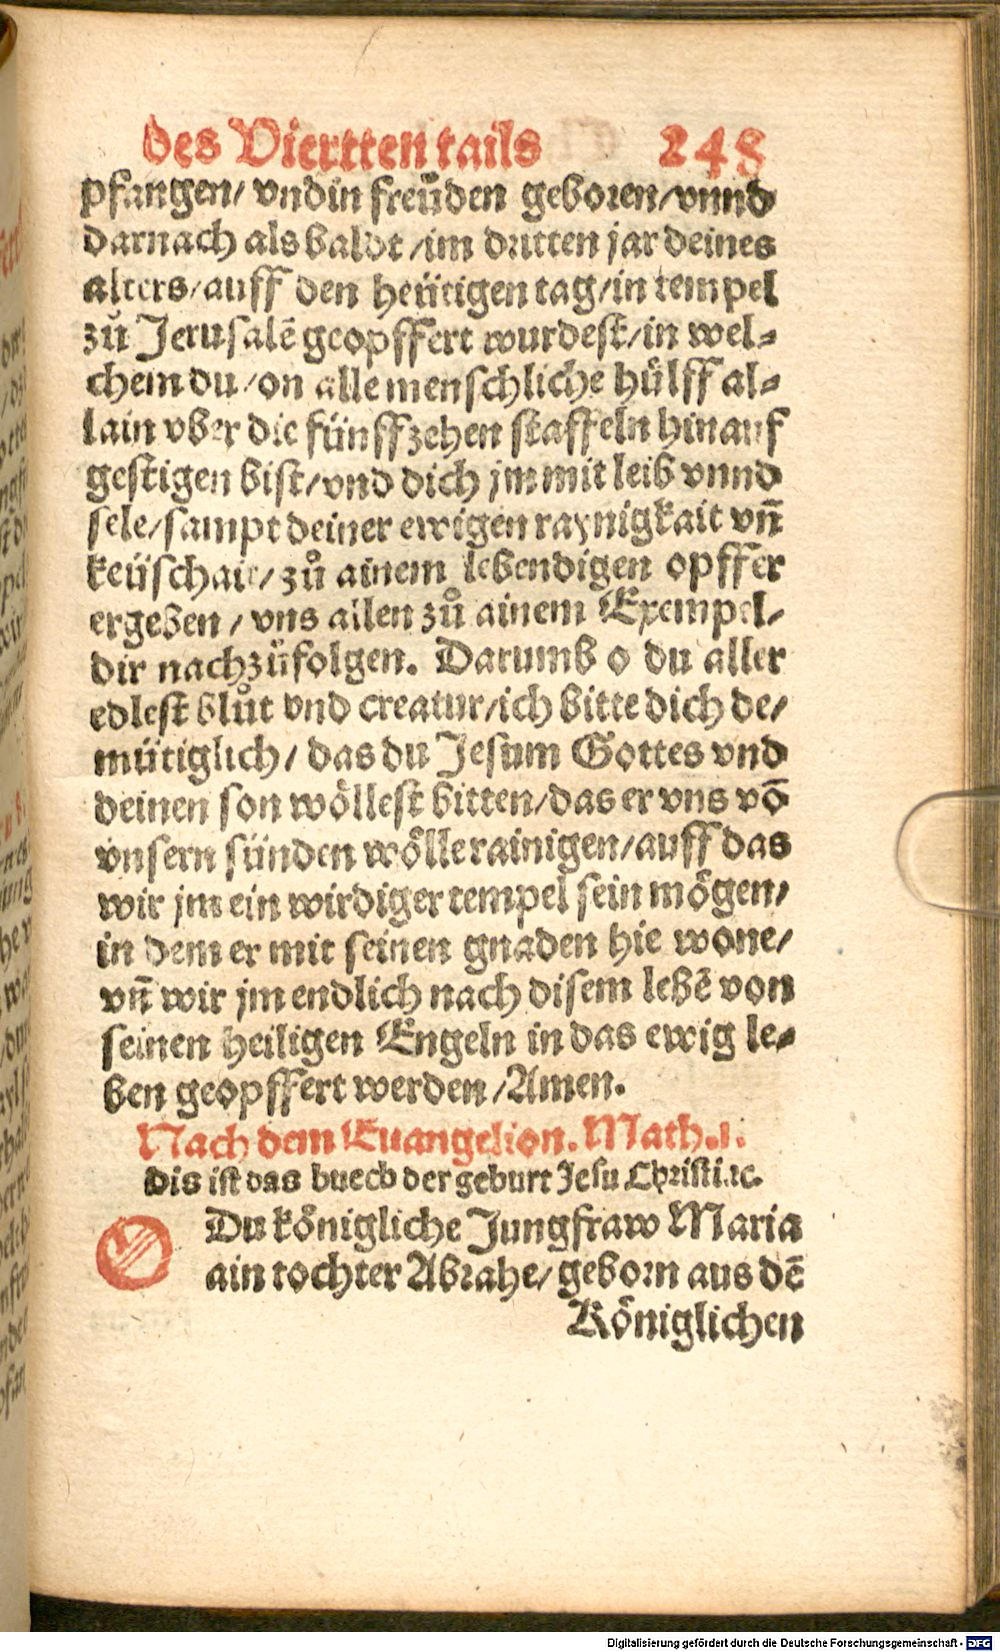 des Viertten tails 248
pfangen/ vndin freüden geboren/vnnd
darnach als baldt/im dritten jar deines
alters/auff den heütigen tag/in tempel
zů Jerusalē geopffert wurdest/in wel-
chem du/on alle menschliche hülff al-
lain vber die fünffzehen staffeln hinauf
gestigen bist/vnd dich jm mit leib vnnd
sele/sampt deiner ewigen raynigkait vñ
keüschait/zů ainem lebendigen opffer
ergeben/vns allen zů ainem Exempel/
dir nachzüfolgen. Darumb o du aller
edlest blůt vnd creatur/ich bitte dich de/
mütiglich/das du Jesum Gottes vnd
deinen son wöllest bitten/das er vns vō
vnsern sünden wölle rainigen/auff das
wir jm ein wirdiger tempel sein mögen/
in dem er mit seinen gnaden hie wone/
vñ wir jm endlich nach disem lebē von
seinen heiligen Engeln in das ewig le-
ben geopffert werden/Amen.
Nach dem Euangelion. Math.1.
Dis ist das buech der geburt Jesu Christi.ꝛc.
O Du königliche Jungfraw Maria
ain tochter Abrahe/geborn aus dē
Königlichen
Digitalisierung gefördert durch die Deutsche Forschungsgemeinschaft - DFG